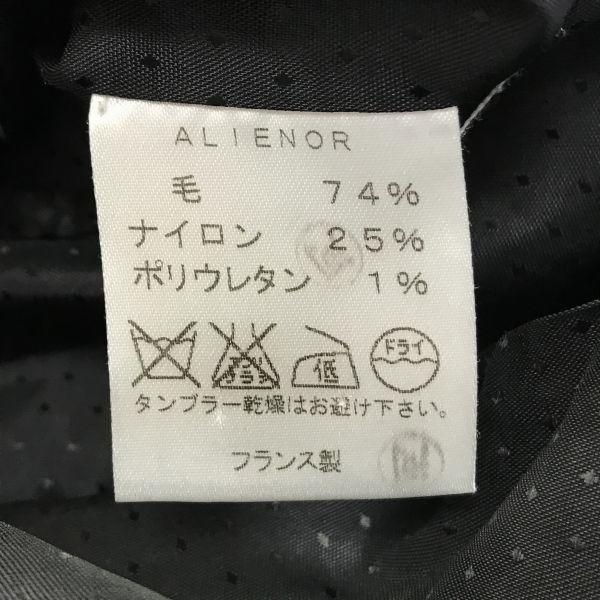 ALIENOR
毛 74%
ナイロン 25%
ポリウレタン 1%
低 ドライ
タンブラー乾燥はお避け下さい。
フランス製